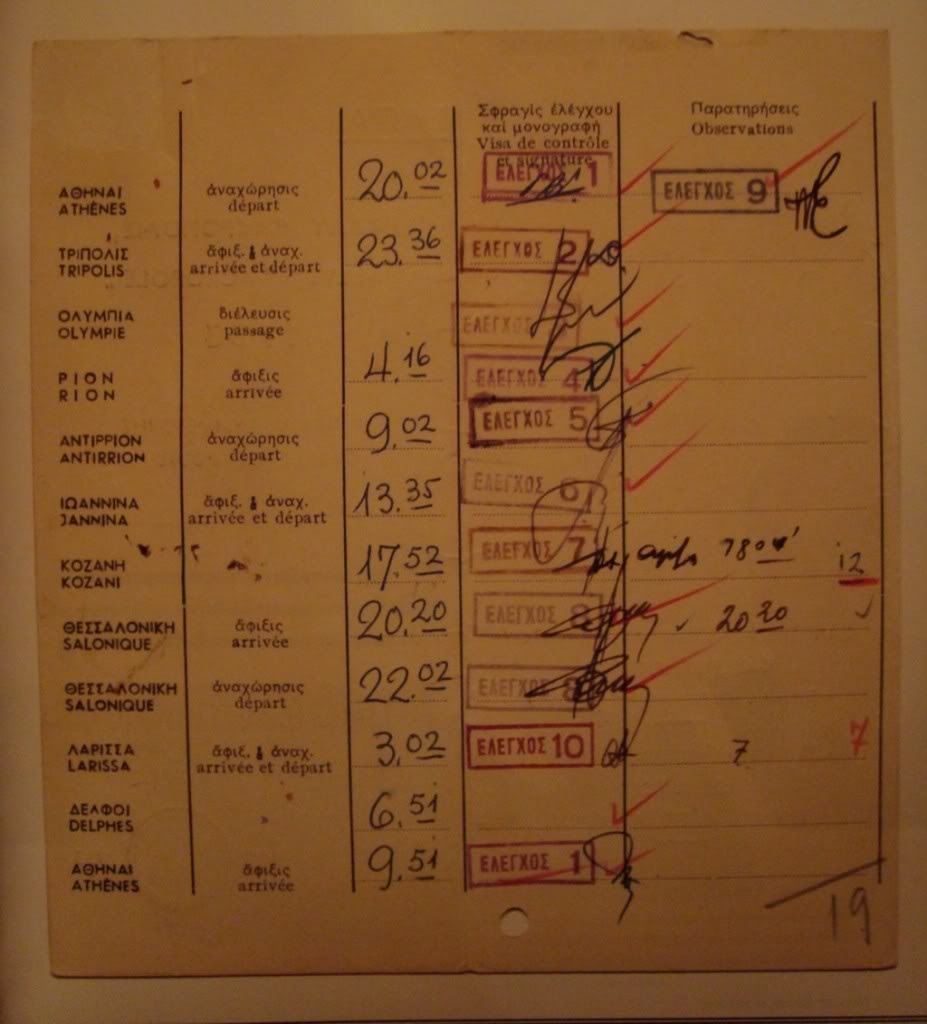 Σφραγὶς ἐλέγχου
καὶ μονογραφή
Visa de contrôle
et signature
Παρατηρήσεις
Observations
ΑΘΗΝΑΙ ἀναχώρησις 20.02 ΕΛΕΓΧΟΣ 1 ΕΛΕΓΧΟΣ 9
ATHÈNES départ
ΤΡΙΠΟΛΙΣ ἄφιξ. & ἀναχ. 23.36 ΕΛΕΓΧΟΣ 2
TRIPOLIS arrivée et départ
ΟΛΥΜΠΙΑ διέλευσις ΕΛΕΓΧΟΣ
OLYMPIE passage
ΡΙΟΝ ἄφιξις 4.16 ΕΛΕΓΧΟΣ 4
RION arrivée
ΑΝΤΙΡΡΙΟΝ ἀναχώρησις 9.02 ΕΛΕΓΧΟΣ 5
ANTIRRION départ
ΙΩΑΝΝΙΝΑ ἄφιξ. & ἀναχ. 13.35 ΕΛΕΓΧΟΣ 6
JANNINA arrivée et départ
ΚΟΖΑΝΗ » 17.52 ΕΛΕΓΧΟΣ 7 12
KOZANI
ΘΕΣΣΑΛΟΝΙΚΗ ἄφιξις 20.20 ΕΛΕΓΧΟΣ 8 20 20
SALONIQUE arrivée
ΘΕΣΣΑΛΟΝΙΚΗ ἀναχώρησις 22.02 ΕΛΕΓΧΟΣ 8
SALONIQUE départ
ΛΑΡΙΣΣΑ ἄφιξ. & ἀναχ. 3.02 ΕΛΕΓΧΟΣ 10 7 7
LARISSA arrivée et départ
ΔΕΛΦΟΙ » 6.51
DELPHES
ΑΘΗΝΑΙ ἄφιξις 9.51 ΕΛΕΓΧΟΣ 1
ATHÈNES arrivée
19